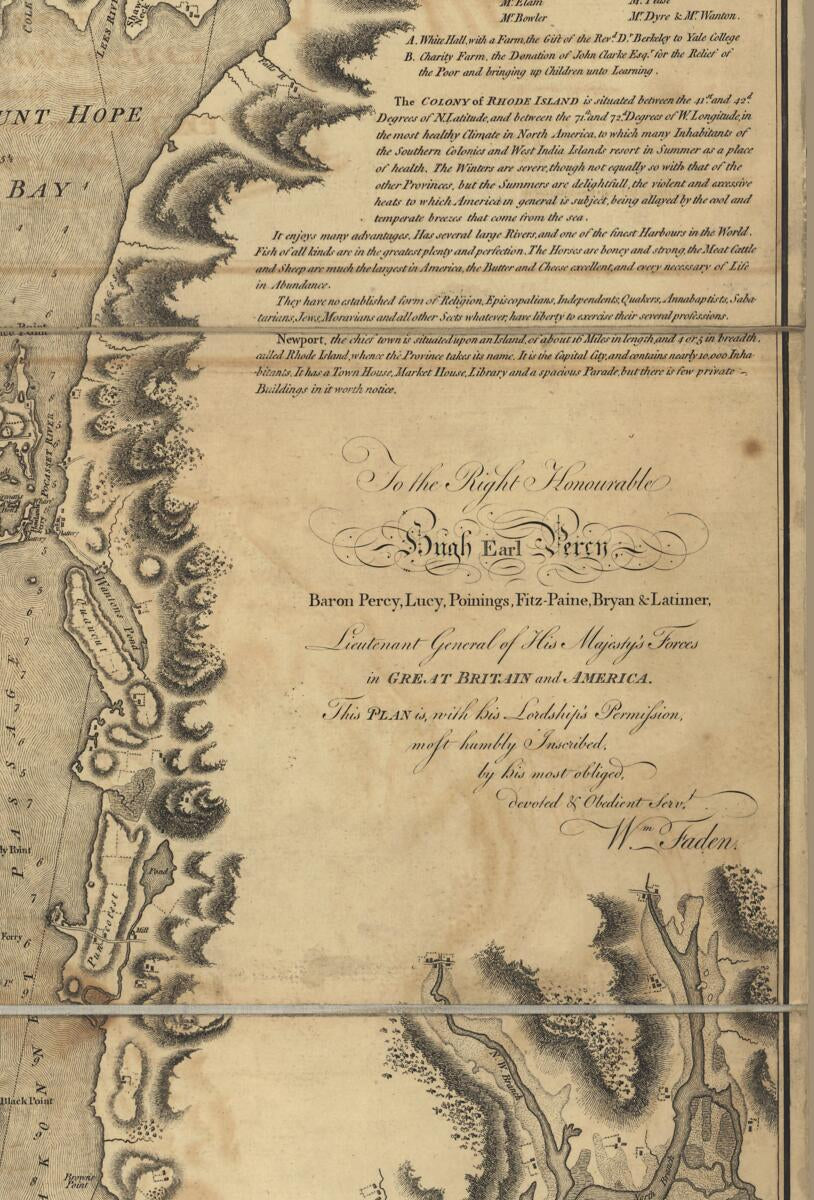 Mr. Elam
Mr. Bowler Mr. Dyre & Mr. Wanton.
A. White Hall, with a Farm, the Gift of the Revd. Dr. Berkeley to Yale College
B. Charity Farm, the Donation of John Clarke Esqr. for the Relief of
the Poor and bringing up Children unto Learning.
The COLONY of RHODE ISLAND is situated between the 41st. and 42d.
Degrees of N. Latitude, and between the 71st. and 72d. Degrees of W. Longitude, in
the most healthy Climate in North America, to which many Inhabitants of
the Southern Colonies and West India Islands resort in Summer as a place
of health. The Winters are severe, though not equally so with that of the
other Provinces, but the Summers are delightfull, the violent and excessive
heats to which America in general is subject, being allayed by the cool and
temperate breezes that come from the sea.
It enjoys many advantages, Has several large Rivers, and one of the finest Harbours in the World.
Fish of all kinds are in the greatest plenty and perfection. The Horses are boney and strong, the Meat Cattle
and Sheep are much the largest in America, the Butter and Cheese excellent, and every necessary of Life
in Abundance.
They have no established form of Religion, Episcopalians, Independents, Quakers, Annabaptists, Saba-
tarians, Jews, Moravians and all other Sects whatever, have liberty to exercise their several professions.
Newport, the chief town is situated upon an Island, of about 16 Miles in length, and 4 or 5 in breadth,
called Rhode Island, whence the Province takes its name. It is the Capital City, and contains nearly 10,000 Inha-
bitants. It has a Town House, Market House, Library and a spacious Parade, but there is few private
Buildings in it worth notice.
To the Right Honourable
Hugh Earl Percy,
Baron Percy, Lucy, Poinings, Fitz-Paine, Bryan & Latimer,
Lieutenant General of His Majesty's Forces
in GREAT BRITAIN and AMERICA.
This PLAN is, with his Lordship's Permission,
most humbly Inscribed,
by his most obliged,
devoted & Obedient Servt.
Wm. Faden.
LEES RIVER
Shaws Neck
UNT HOPE
BAY
POCASSET RIVER
Wantons Pond
Nanucut
PASSAGE
Pond
Mill
Punceotest
Ferry
Black Point
Browns
Point
N.W. Branch
Branch